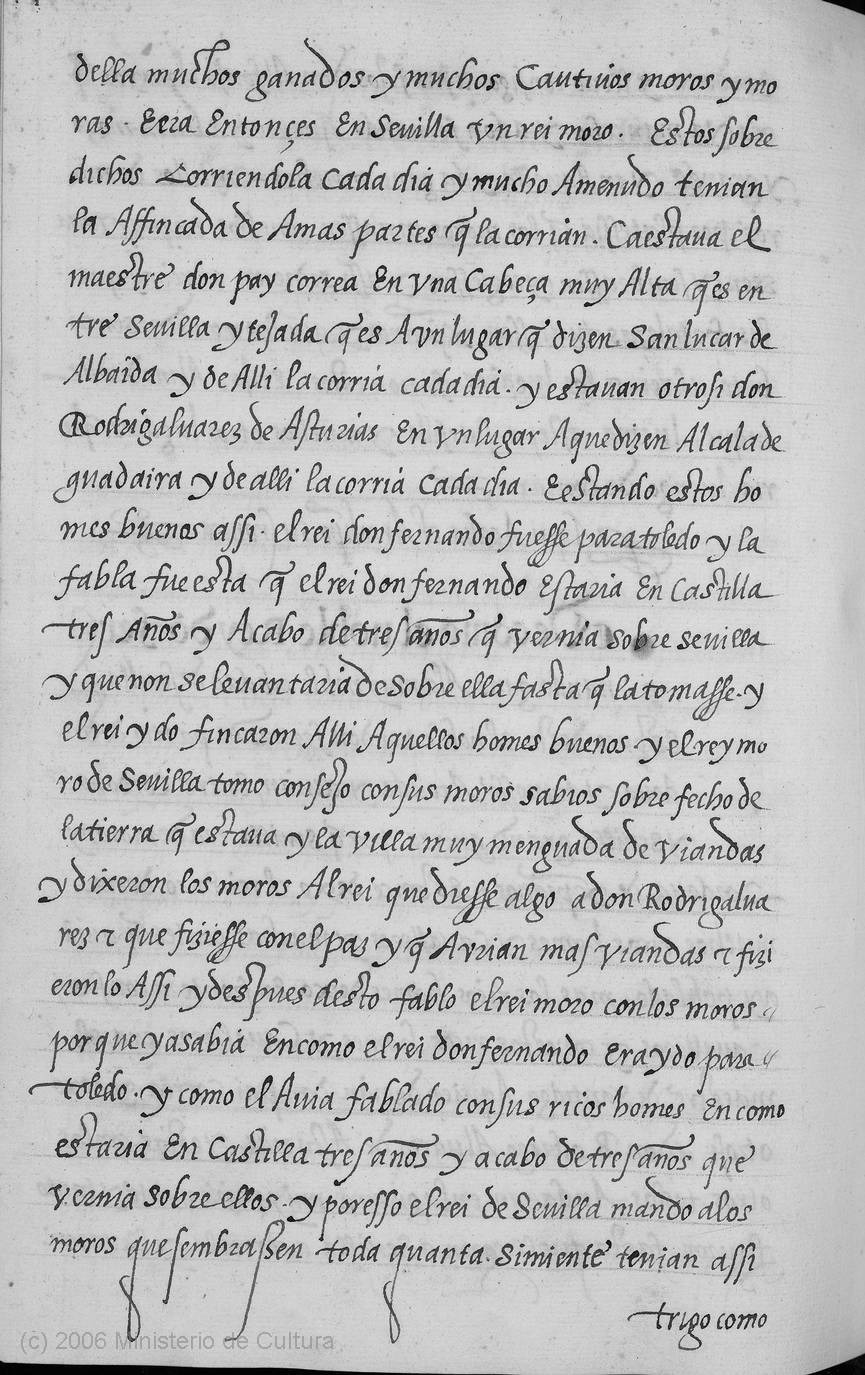 della muchos ganados y muchos Cautiuos moros y mo
ras · Eera Entonçes En Sevilla vn rei moro · Estos sobre
dichos Corriendola cada dia y mucho Amenudo tenian
la Affincada de Amas partes q̃ la corrian · Ca estaua el
maestre don pay correa En vna Cabeça muy Alta q̃ es en
tre Sevilla y tejada q̃ es A vn lugar q̃ dizen San lucar de
Albaida y de Alli la corria cada dia · y estauan otrosi don
Rodrigaluarez de Asturias En vn lugar A que dizen Alcala de
guadaira y de alli la corria cada dia · Eestando estos ho
mes buenos assi · el rei don fernando fuesse para toledo y la
fabla fue esta q̃ el rei don fernando Estaria En Castilla
tres Años y Acabo de tres años q̃ vernia sobre sevilla
y que non se levantaria de sobre ella fasta q̃ la tomasse · y
el rei ydo fincaron Alli Aquellos homes buenos · y el rey mo
ro de Sevilla tomo consejo con sus moros sabios sobre fecho de
la tierra q̃ estaua y la villa muy menguada de viandas
y dixeron los moros Al rei que diesse algo a don Rodrigalua
rez ⁊ que fiziesse con el paz y q̃ Avrian mas viandas ⁊ fizi
eron lo Assi y despues desto fablo el rei moro con los moros
por que ya sabia En como el rei don fernando Era ydo para
toledo · y como el Auia fablado con sus ricos homes En como
estaria En Castilla tres años y a cabo de tres años que
vernia sobre ellos · y por esso el rei de Sevilla mando a los
moros que sembrassen toda quanta simiente tenian assi
trigo como
(c) 2006 Ministerio de Cultura